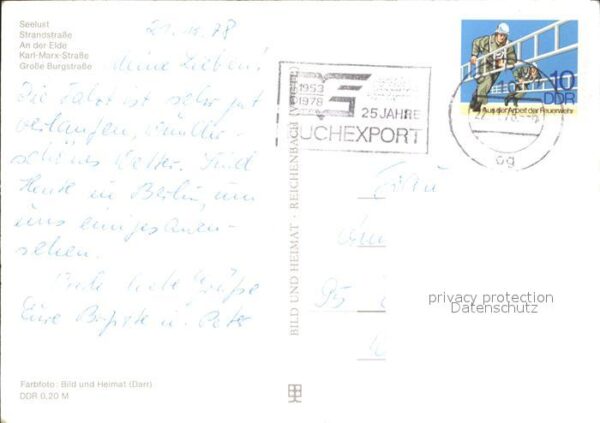 Seelust
Strandstraße
An der Elde
Karl-Marx-Straße
Große Burgstraße
21.10.78
Meine Lieben!
Die Fahrt ist sehr gut
verlaufen,
schönes Wetter. Sind
Heute in Berlin, um
uns
sehen.
Viele liebe Grüße
Eure u. Peter
Farbfoto: Bild und Heimat (Darr)
DDR 0,20 M
BILD UND HEIMAT · REICHENBACH (VOGTL)
1953
1978
25 JAHRE
BUCHEXPORT
10
DDR
Aus der Arbeit der Feuerwehr
Frau
95
privacy protection
Datenschutz